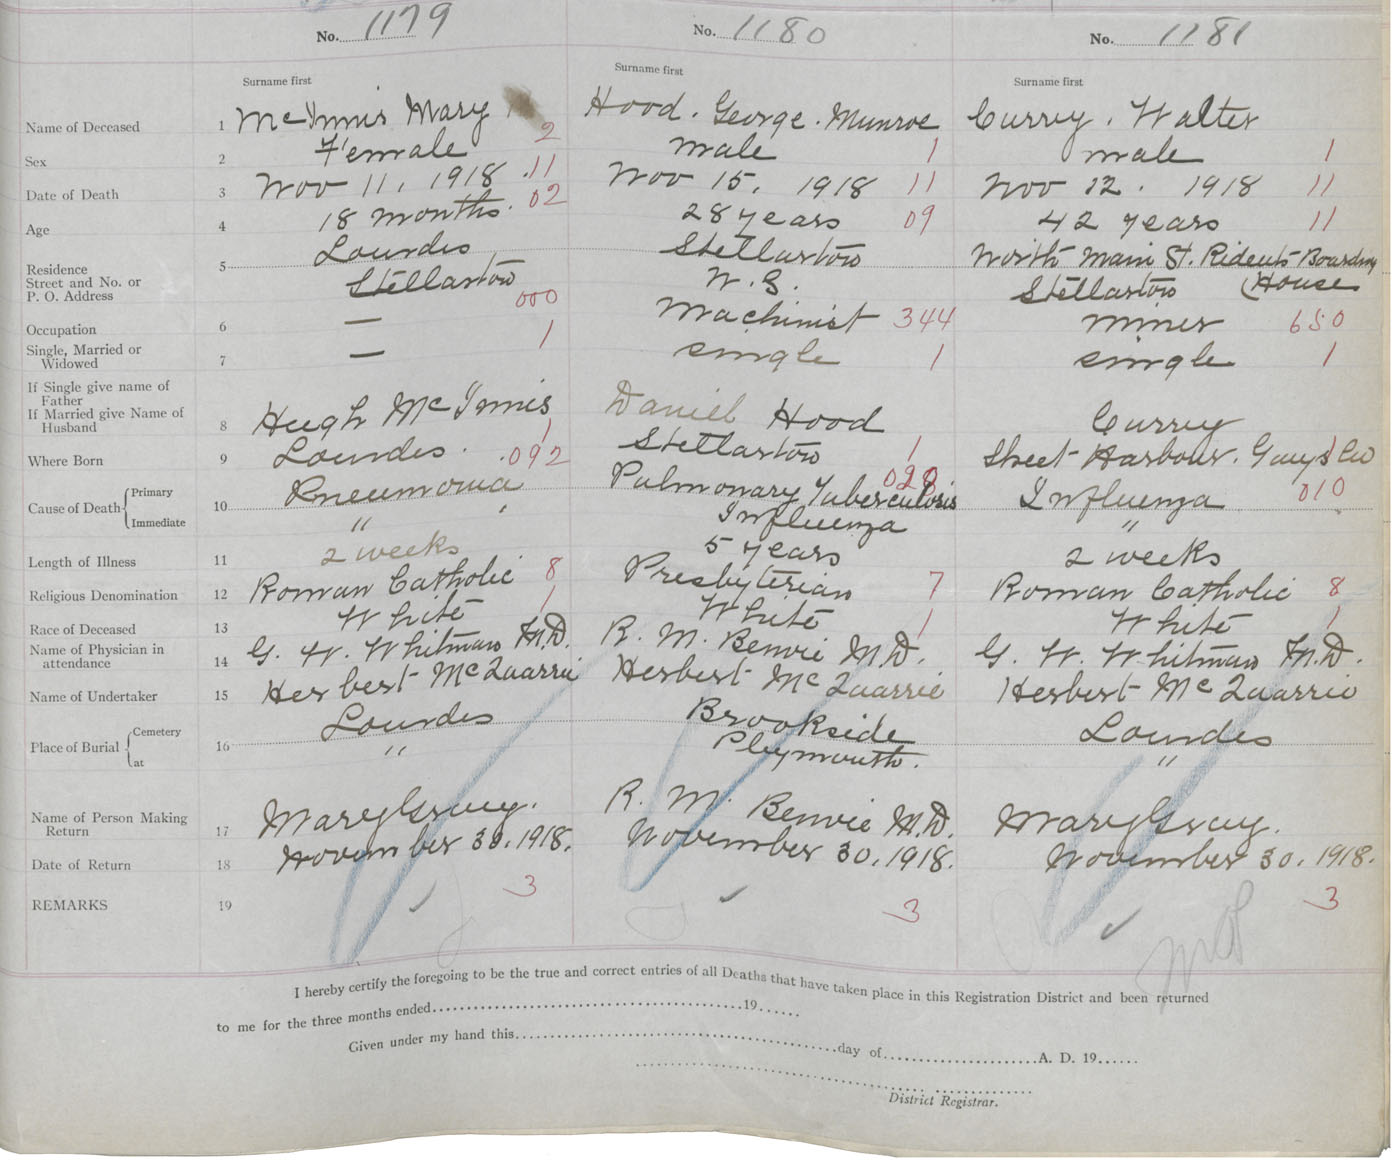 No. 1179 No. 1180 No. 1181
Surname first Surname first Surname first
Name of Deceased 1 McInnis Mary Hood. George. Munroe Curry. Walter
Sex 2 Female 2 male 1 male 1
Date of Death 3 Nov 11, 1918 11 Nov 15, 1918 11 Nov 12. 1918 11
Age 4 18 months. 02 28 years 09 42 years 11
Residence
Street and No. or
P. O. Address 5 Lourdes Stellarton North Main St. Ridents Boarding
Stellarton N. S. Stellarton (House
000
Occupation 6 — Machinist 344 miner 650
Single, Married or
Widowed 7 — 1 single 1 single 1
If Single give name of
Father
If Married give Name of
Husband 8 Hugh McInnis Daniel Hood Curry
Where Born 9 Lourdes. 1 Stellarton 1 Sheet Harbour. Guys Co 1
Cause of Death Primary 10 Pneumonia .092 Pulmonary Tuberculosis Influenza 010
Immediate " Influenza "
Length of Illness 11 2 weeks 5 years 2 weeks
Religious Denomination 12 Roman Catholic 8 Presbyterian 7 Roman Catholic 8
Race of Deceased 13 White 1 White 1 White 1
Name of Physician in
attendance 14 G. W. Whitman M.D. R. M. Benvie M.D. G. W. Whitman M.D.
Name of Undertaker 15 Herbert McQuarrie Herbert McQuarrie Herbert McQuarrie
Place of Burial Cemetery 16 Lourdes Brookside Lourdes
at " Plymouth. "
Name of Person Making
Return 17 Mary Gray. R. M. Benvie M.D. Mary Gray.
Date of Return 18 November 30. 1918. November 30. 1918. November 30. 1918.
REMARKS 19 3 3 3
I hereby certify the foregoing to be the true and correct entries of all Deaths that have taken place in this Registration District and been returned
to me for the three months ended 19
Given under my hand this day of A. D. 19
District Registrar.